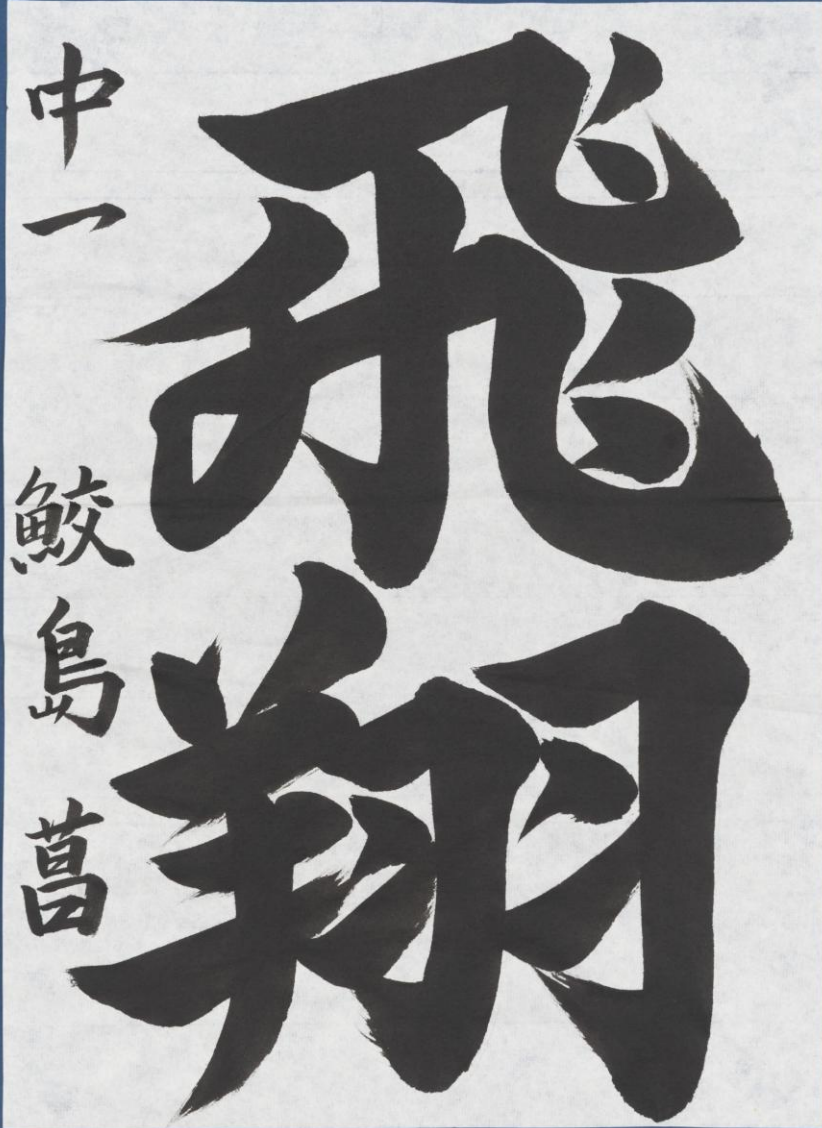 飛翔
中一 鮫島 菖